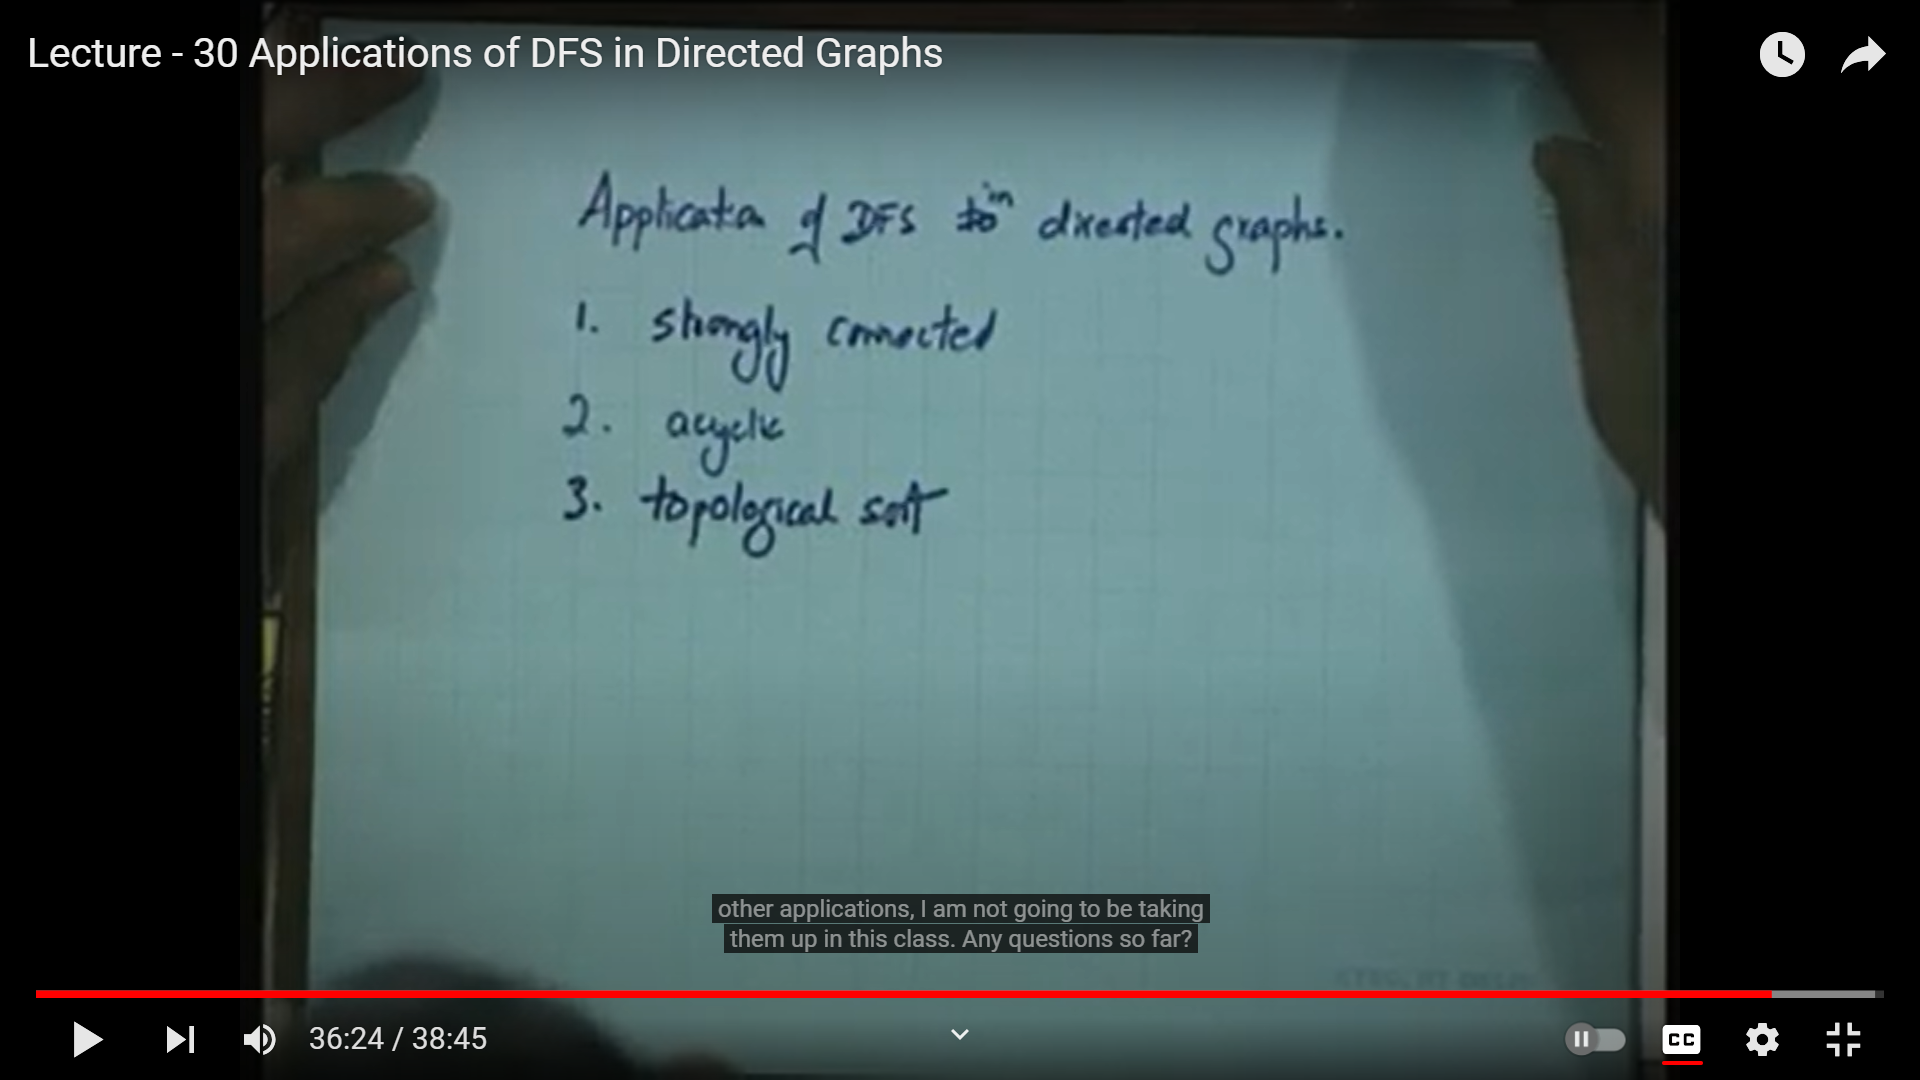 Lecture - 30 Applications of DFS in Directed Graphs
Application of DFS to in directed graphs.
1. strongly connected
2. acyclic
3. topological sort
other applications, I am not going to be taking
them up in this class. Any questions so far?
36:24 / 38:45
CC